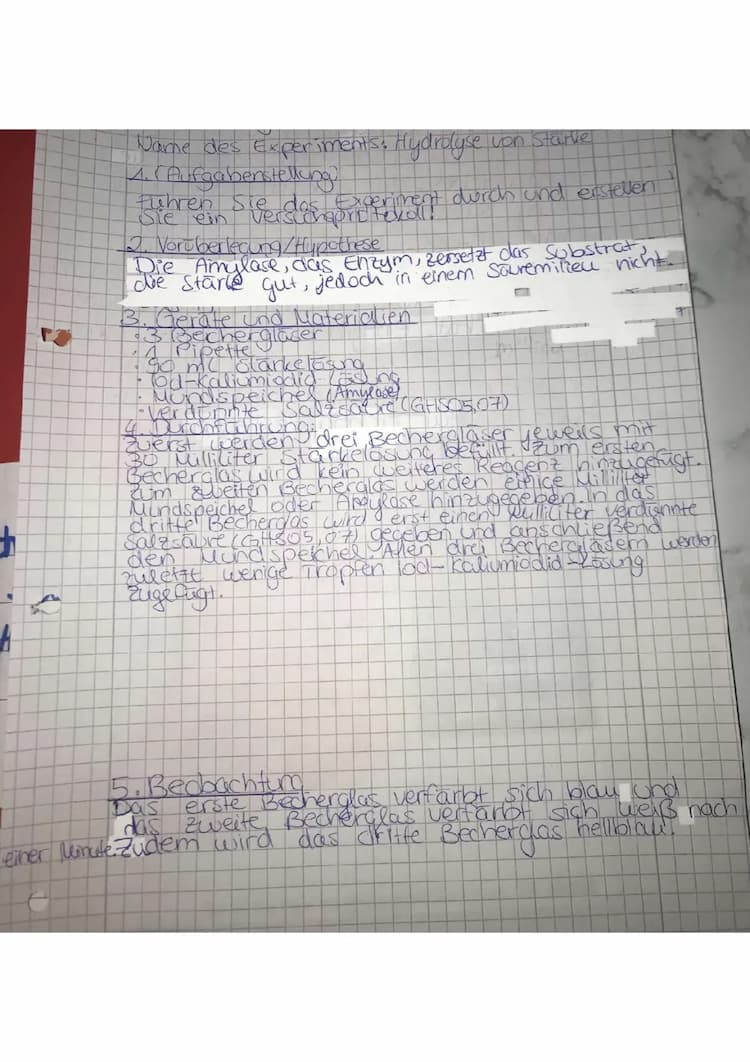 Name des Experiments: Hydrolyse von Stärke
1. (Aufgabenstellung)
Führen Sie das Experiment durch und erstellen
Sie ein Versuchsprotokoll!
2. Vorüberlegung/Hypothese
Die Amylase, das Enzym, zersetzt das Substrat,
die Stärke gut, jedoch in einem Sauremilieu nicht.
3. Geräte und Materialien
· 3 Bechergläser
· 1 Pipette
· 90 ml Stärkelösung
· Iod-Kaliumiodid Lösung
· Mundspeichel (Amylase)
· verdünnte Salzsäure (GHS05,07)
4. Durchführung:
Zuerst werden drei Bechergläser jeweils mit
30 Milliliter Stärkelösung befüllt. Zum ersten
Becherglas wird kein weiteres Reagenz hinzugefügt.
Zum zweiten Becherglas werden einige Milliliter
Mundspeichel oder Amylase hinzugegeben. In das
dritte Becherglas wird erst einen Milliliter verdünnte
Salzsäure (GHS05,07) gegeben und anschließend
den Mundspeichel. Allen drei Bechergläsern werden
zuletzt wenige Tropfen Iod-Kaliumiodid-Lösung
zugefügt.
5. Beobachtung
Das erste Becherglas verfärbt sich blau und
das zweite Becherglas verfärbt sich weiß nach
einer Minute. Zudem wird das dritte Becherglas hellblau.